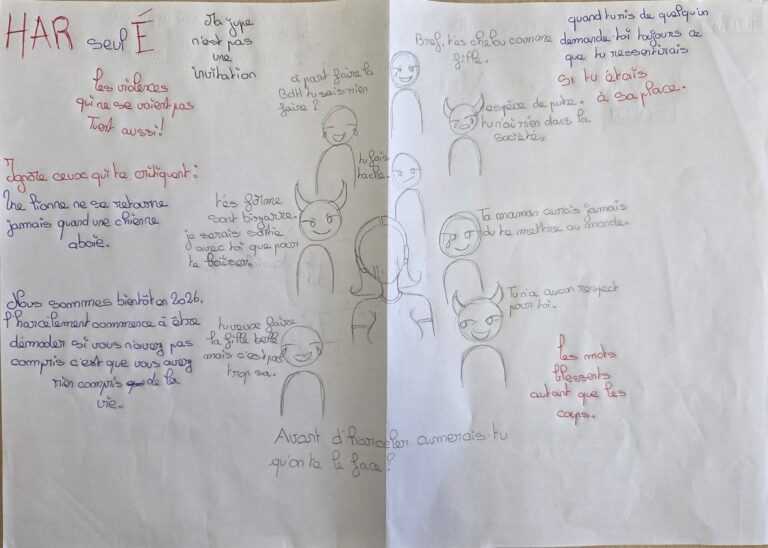 HAR seul É
Ma jupe
n'est pas
une
invitation
Les violences
qui ne se voient pas
Tuent aussi!
Ignore ceux qui te critiquent:
Une lionne ne se retourne
jamais quand une chienne
aboie.
Nous sommes bientôt en 2026,
l'harcèlement commence à être
démoder si vous n'avez pas
compris c'est que vous avez
rien compris de la
vie.
à part faire la
BDH tu sais rien
faire?
t'es
sont bizarre.
je serais sortie
avec toi que pour
te baiser.
tu veux faire
ta fille belle
mais c'est pas
trop sa.
tu fais
tache.
Bref, t'es chelou comme
fille.
espèce de pute.
tu n'ai rien dans la
société.
Ta maman aurais jamais
du te mettre au monde.
Tu n'a aucun respect
pour toi.
quand tu ris de quelqu'un
demande-toi toujours ce
que tu ressentirais
si tu étais
à sa place.
Les mots
blessents
autant que les
coups.
Avant d'harceler aimerais-tu
qu'on te le face?